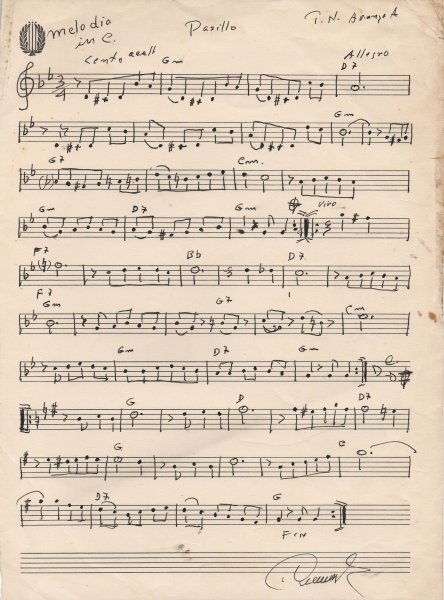 melodia Pasillo T. N. Arango A
in C.
Lento acell Gm Allegro
D7
3/4
Gm
G7 Cm.
Gm D7 Gm Vivo
F7 Bb D7
F7
Gm G7 Cm
Gm D7 Gm D.C.
G D D7
G C
D7 G
FIN